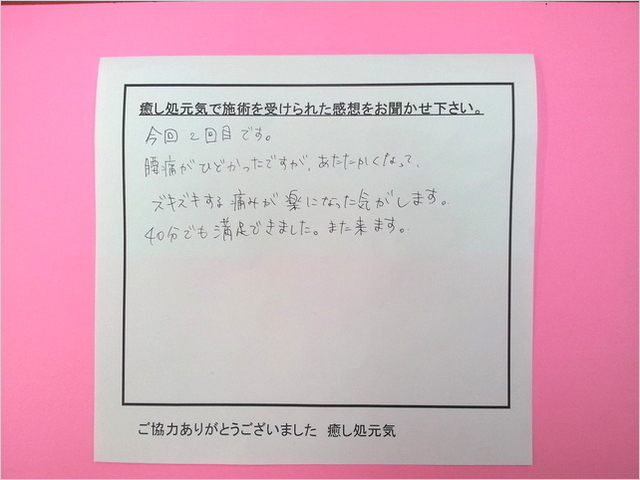 癒し処元気で施術を受けられた感想をお聞かせ下さい。
今回2回目です。
腰痛がひどかったですが、あたたかくなって、
ズキズキする痛みが楽になった気がします。
40分でも満足できました。また来ます。
ご協力ありがとうございました 癒し処元気